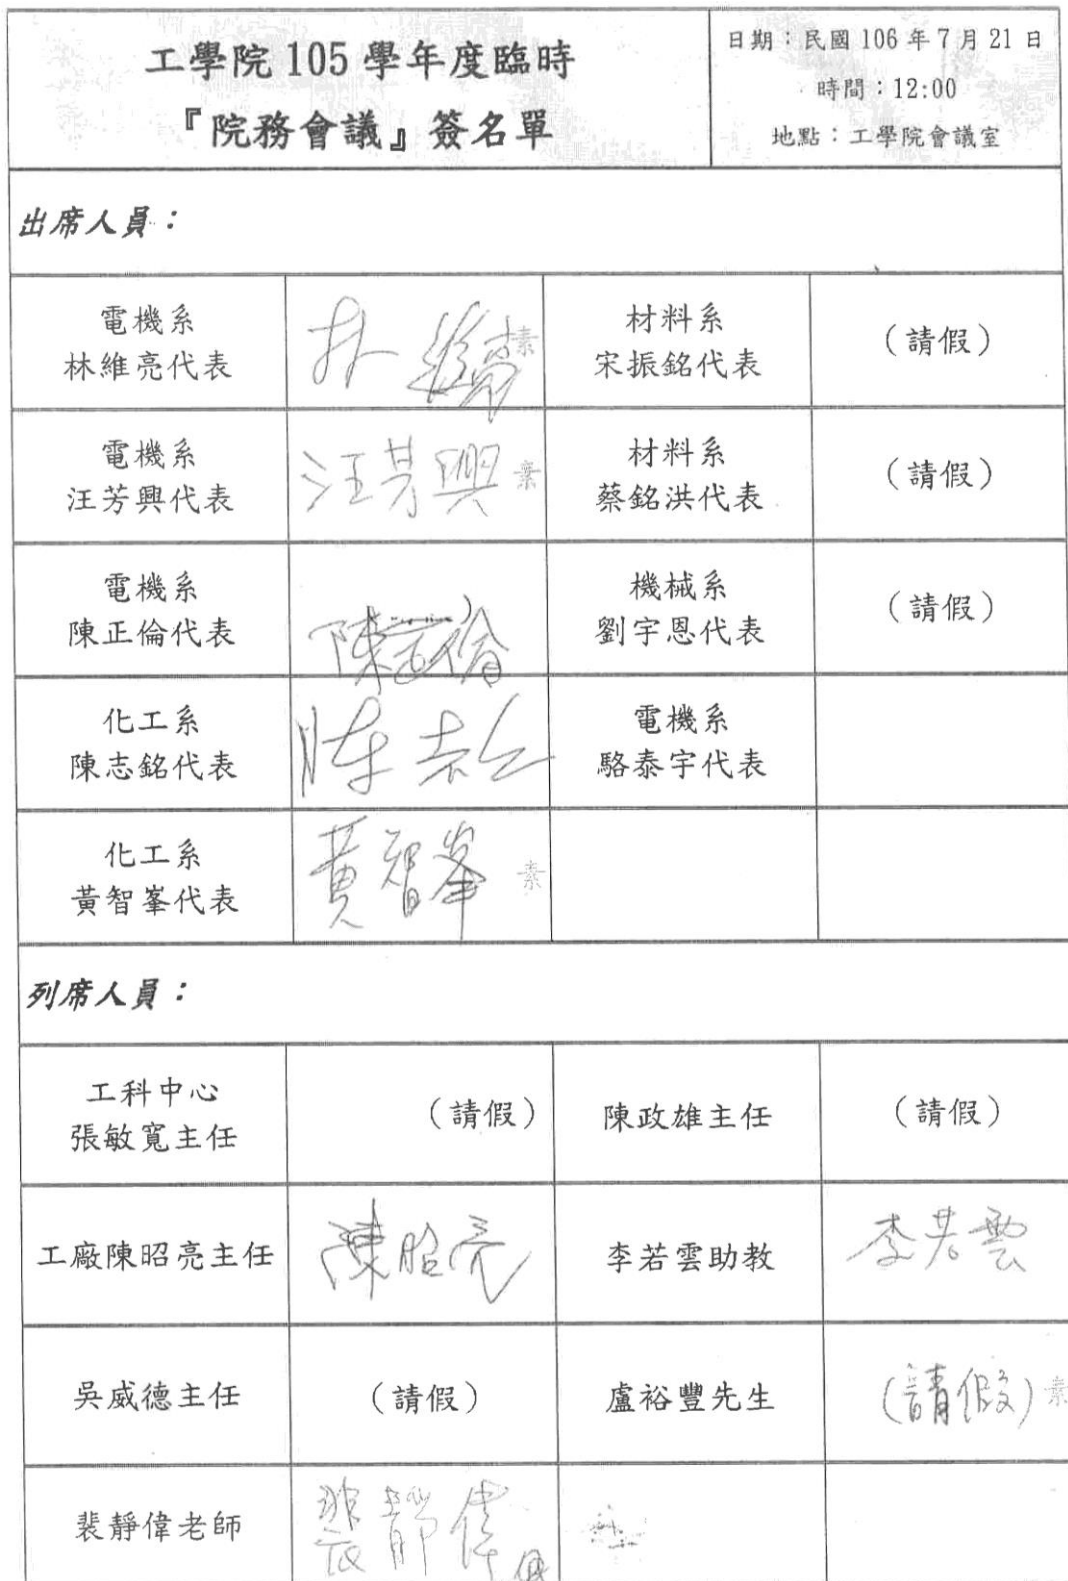 工學院 105 學年度臨時
『院務會議』簽名單
日期：民國 106 年 7 月 21 日
時間：12:00
地點：工學院會議室
出席人員：
電機系
林維亮代表
林維亮 素
材料系
宋振銘代表
（請假）
電機系
汪芳興代表
汪芳興 素
材料系
蔡銘洪代表
（請假）
電機系
陳正倫代表
陳正倫
機械系
劉宇恩代表
（請假）
化工系
陳志銘代表
陳志銘
電機系
駱泰宇代表
化工系
黃智峯代表
黃智峯 素
列席人員：
工科中心
張敏寬主任
（請假）
陳政雄主任
（請假）
工廠陳昭亮主任
陳昭亮
李若雲助教
李若雲
吳威德主任
（請假）
盧裕豐先生
(請假) 素
裴靜偉老師
裴靜偉